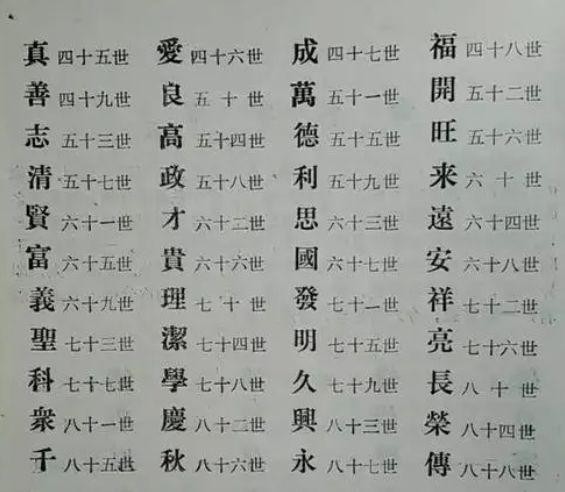 真 四十五世 愛 四十六世 成 四十七世 福 四十八世
善 四十九世 良 五十世 萬 五十一世 開 五十二世
志 五十三世 高 五十四世 德 五十五世 旺 五十六世
清 五十七世 政 五十八世 利 五十九世 来 六十世
賢 六十一世 才 六十二世 思 六十三世 遠 六十四世
富 六十五世 貴 六十六世 國 六十七世 安 六十八世
義 六十九世 理 七十世 發 七十一世 祥 七十二世
聖 七十三世 潔 七十四世 明 七十五世 亮 七十六世
科 七十七世 學 七十八世 久 七十九世 長 八十世
衆 八十一世 慶 八十二世 興 八十三世 榮 八十四世
千 八十五世 秋 八十六世 永 八十七世 傳 八十八世